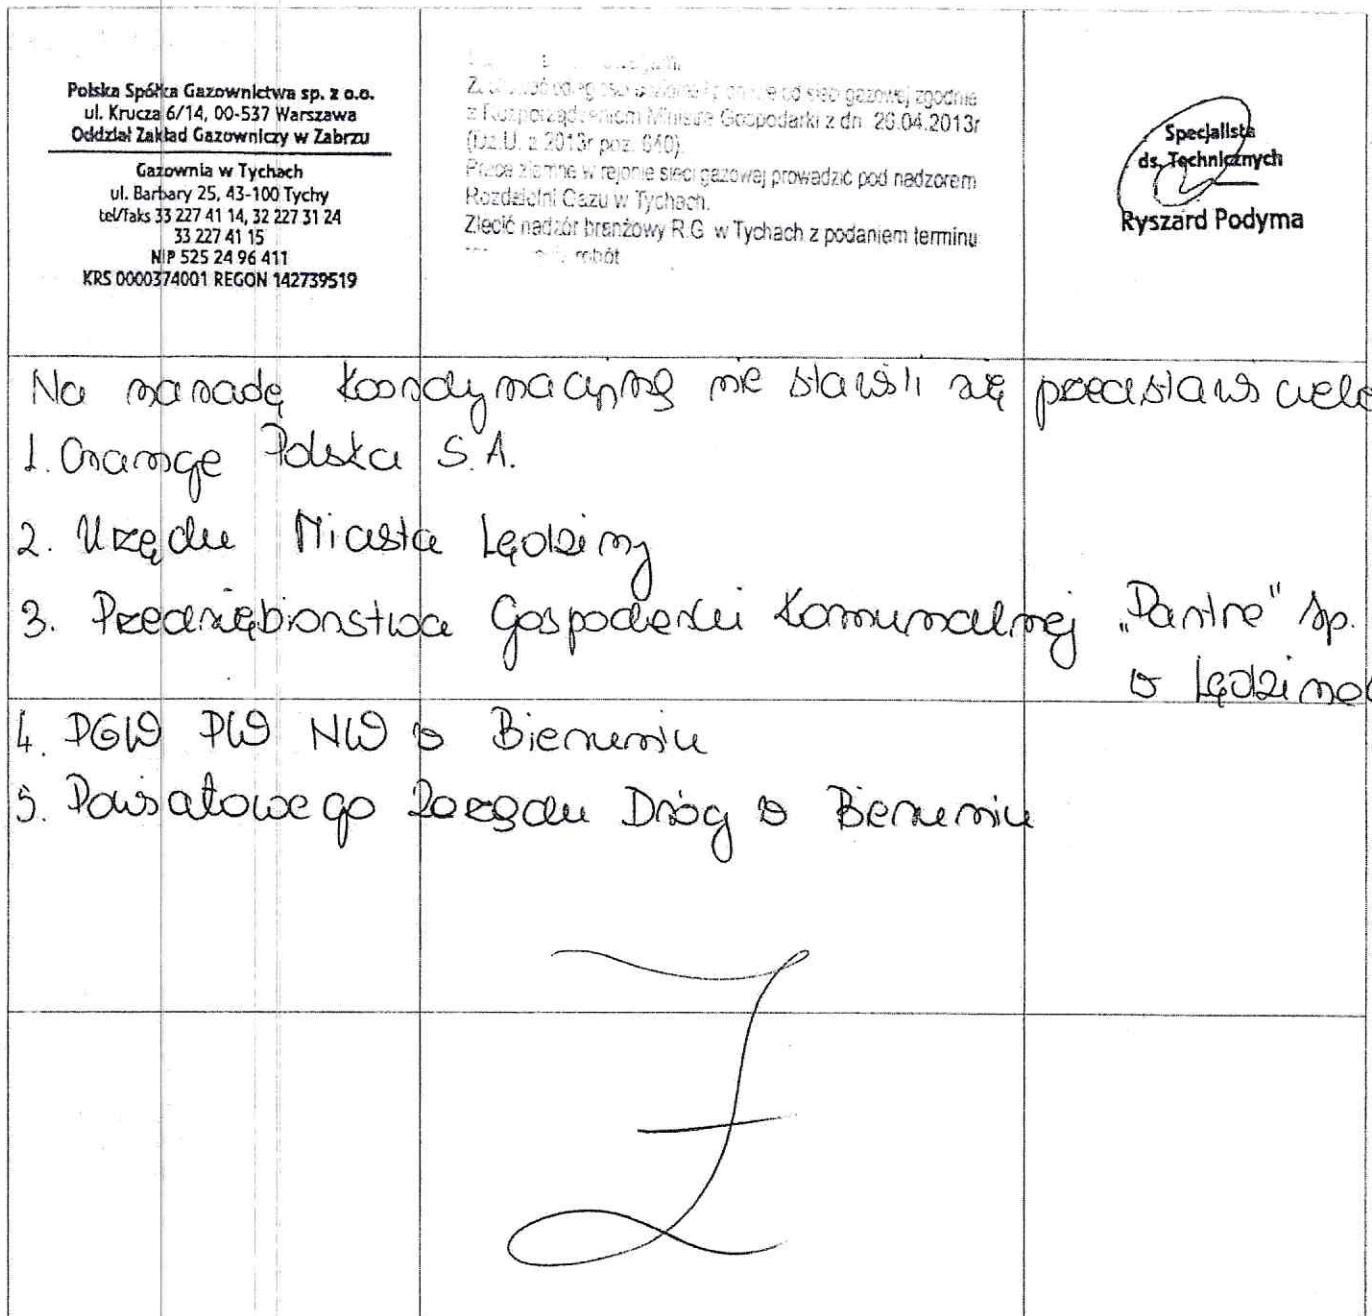 Polska Spółka Gazownictwa sp. z o.o.
ul. Krucza 6/14, 00-537 Warszawa
Oddział Zakład Gazowniczy w Zabrzu
Gazownia w Tychach
ul. Barbary 25, 43-100 Tychy
tel/faks 33 227 41 14, 32 227 31 24
33 227 41 15
NIP 525 24 96 411
KRS 0000374001 REGON 142739519
od sieci gazowej zgodnie
z Rozporządzeniem Ministra Gospodarki z dn. 26.04.2013r
(Dz.U. z 2013r poz. 640).
Prace ziemne w rejonie sieci gazowej prowadzić pod nadzorem
Rozdzielni Gazu w Tychach.
Zlecić nadzór branżowy R.G. w Tychach z podaniem terminu
robót
Specjalista
ds. Technicznych
Ryszard Podyma
Na naradę koordynacyjną nie stawili się przedstawiciele
1. Orange Polska S.A.
2. Urzędu Miasta Lędziny
3. Przedsiębiorstwa Gospodarki Komunalnej „Partner" Sp.
w Lędzinach
4. PGW PW NW w Bieruniu
5. Powiatowego Zarządu Dróg w Bieruniu